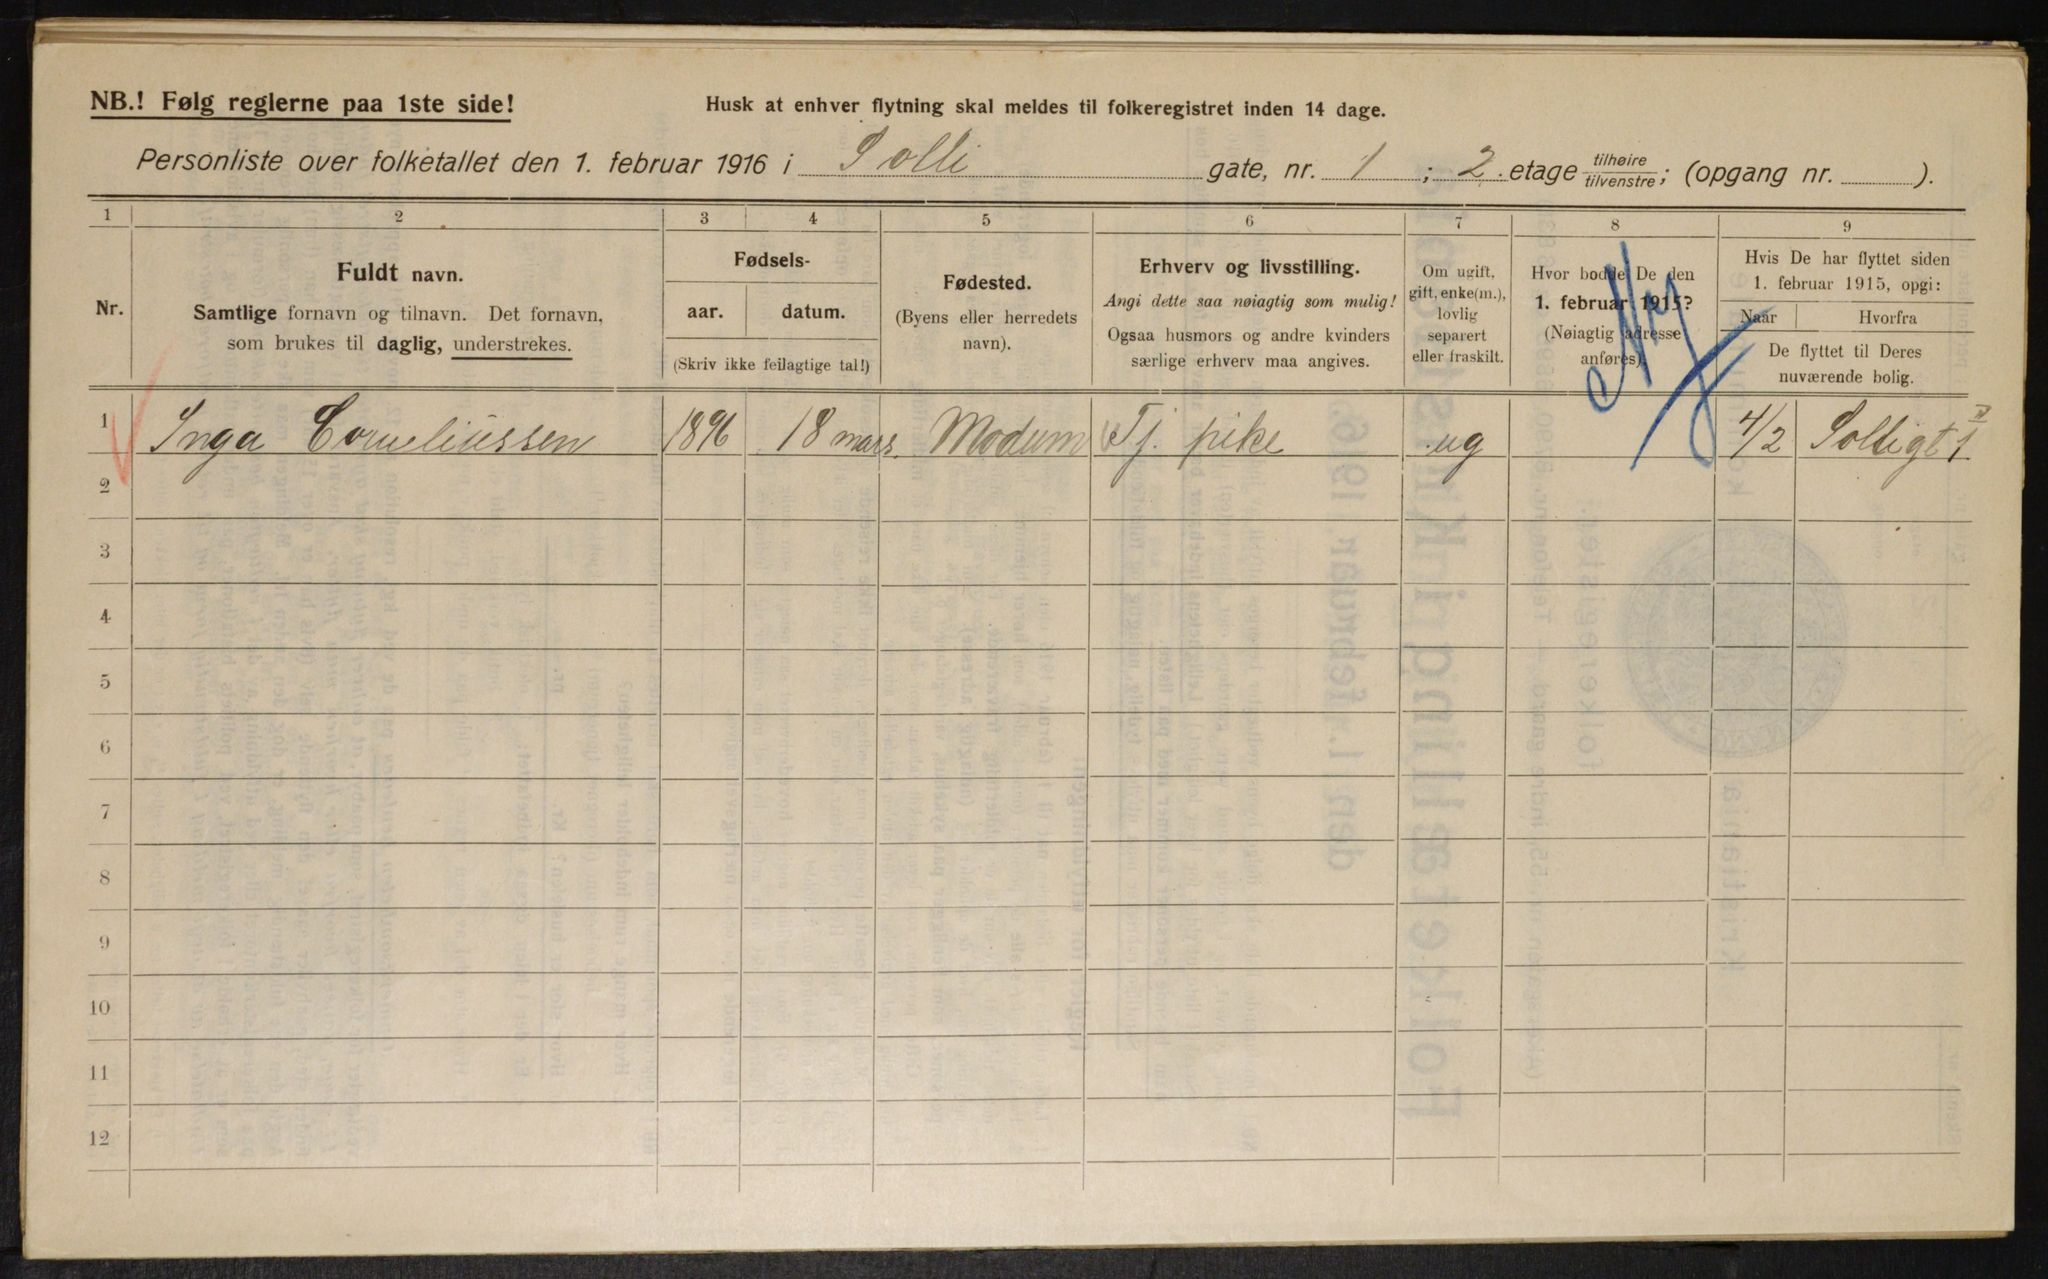 NB.! Følg reglerne paa 1ste side!
Husk at enhver flytning skal meldes til folkeregistret inden 14 dage.
Personliste over folketallet den 1. februar 1916 i Solli gate, nr. 1 ; 2. etage tilhøire/tilvenstre; (opgang nr. ).
1 2 3 4 5 6 7 8 9
Nr.
Fuldt navn.
Samtlige fornavn og tilnavn. Det fornavn,
som brukes til daglig, understrekes.
Fødsels-
aar. datum.
(Skriv ikke feilagtige tal!)
Fødested.
(Byens eller herredets
navn).
Erhverv og livsstilling.
Angi dette saa nøiagtig som mulig!
Ogsaa husmors og andre kvinders
særlige erhverv maa angives.
Om ugift,
gift, enke(m.),
lovlig
separert
eller fraskilt.
Hvor bodde De den
1. februar 1915?
(Nøiagtig adresse
anføres).
Ny
Hvis De har flyttet siden
1. februar 1915, opgi:
Naar Hvorfra
De flyttet til Deres
nuværende bolig.
1 Inga Corneliussen 1896 18 mars. Modum Tj. pike ug 4/2 Solligt 1 II
2
3
4
5
6
7
8
9
10
11
12